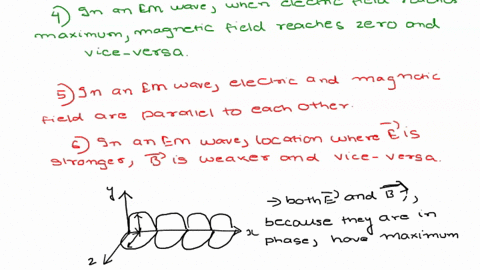 4) In an EM wave, when electric field reaches
maximum, magnetic field reaches zero and
vice-versa.
5) In an EM wave, electric and magnetic
field are parallel to each other.
6) In an EM wave, location where E is
stronger, B is weaker and vice-versa.
y
x
z
→ both E and B,
because they are in
phase, have maximum